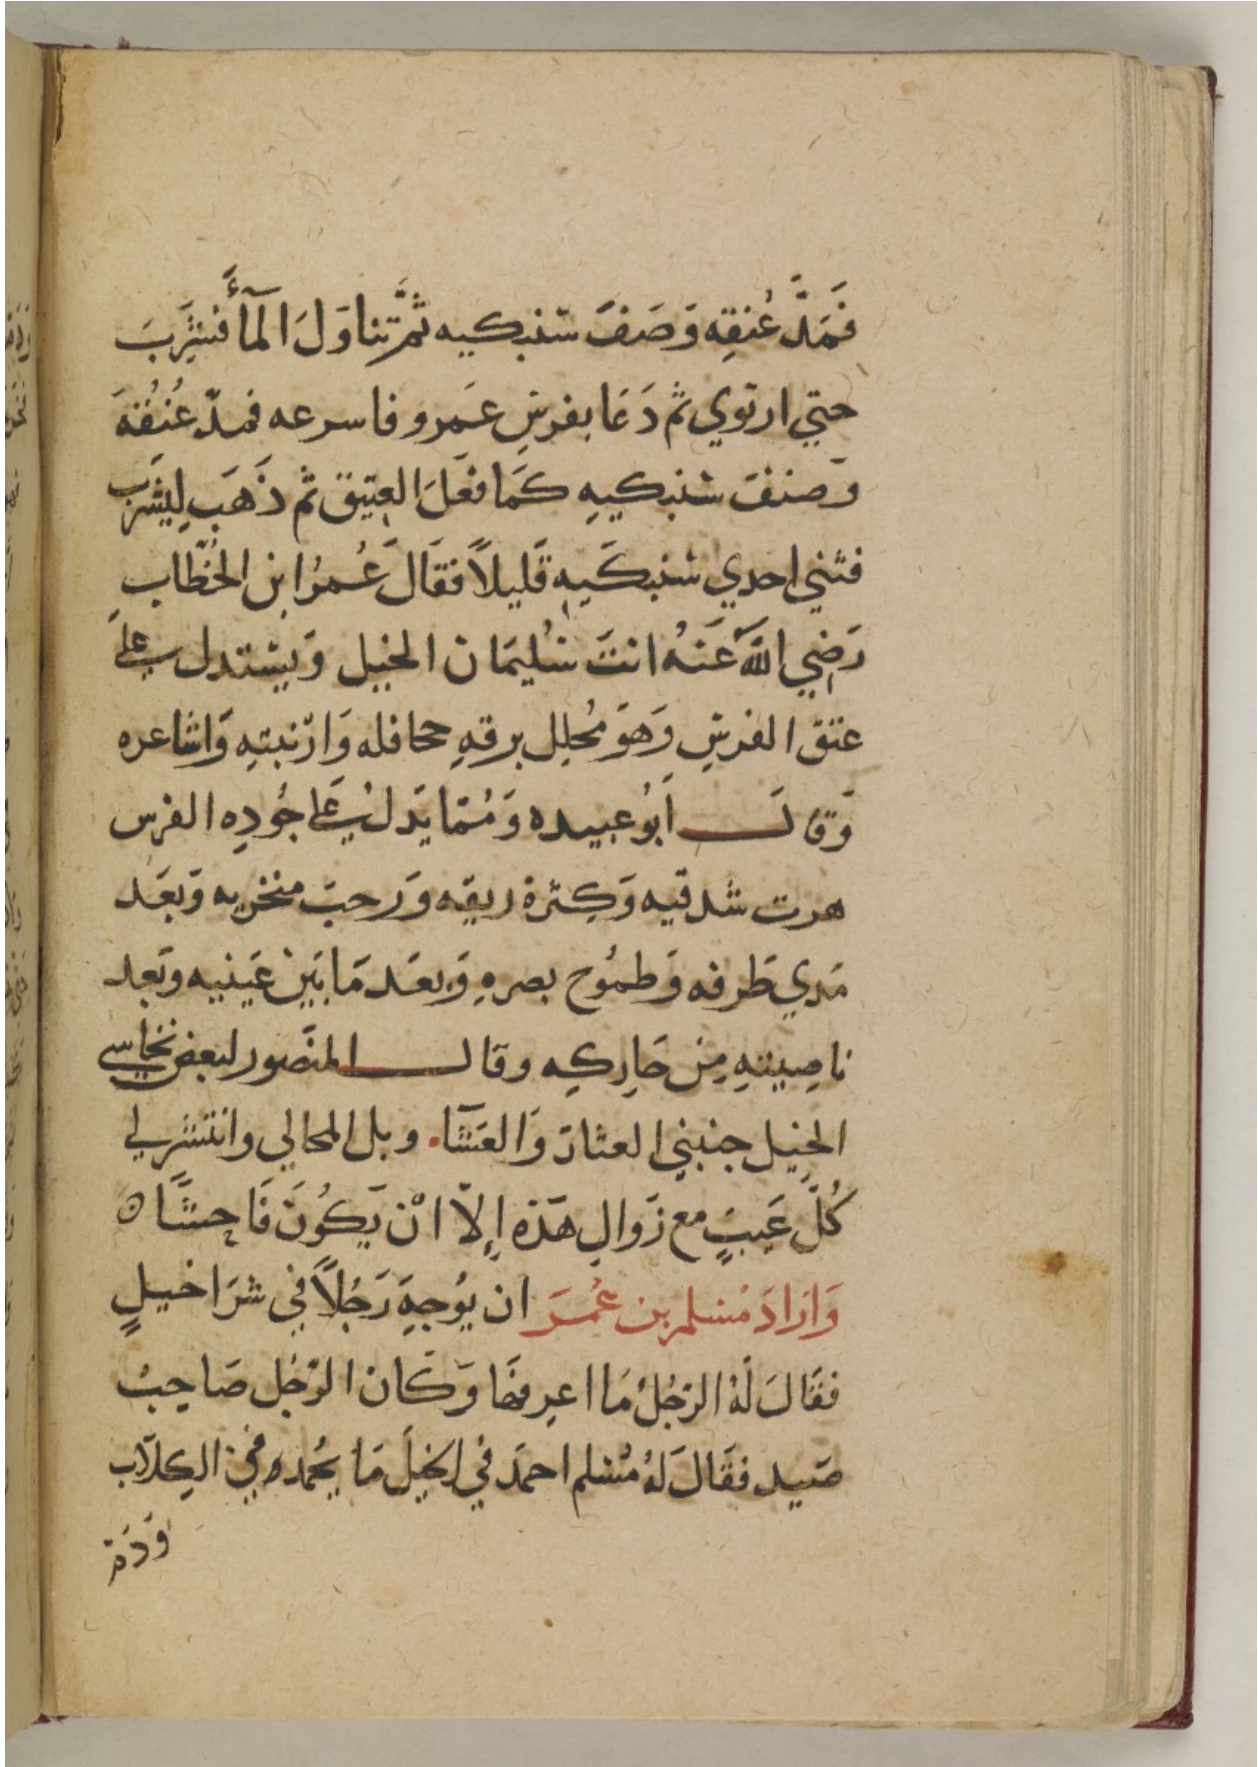 فَمَدَّ عُنقِه وَصَفَ سَنبكيه ثُمَّ تناوَلَ المآءَ فشَرِبَ
حتي ارتوي ثم دَعَا بفرسِ عَمرو فاسرعه فمدّ عُنُقهَ
وَصنفَ سَنبكيهِ كَمَا فعَلَ العتيق ثم ذَهَب لِيَشرَب
فثني احدي سَنبكَيهِ قَليلاً فقَالَ عُمرُ ابن الخُطّاب
رَضِي اللَّهَ عَنَهُ انتَ سُليمَان الخيل وَيستدل علي
عتق الفرسِ وَهوَ مُجلل برقهِ جحافله وَارْنبتِهِ وَاشاعره
وَقالَ ابَوُ عبيده وَمُمّا يَدلُ علَي جُودِه الفرس
هرت شدقيه وَكِثرة ريقِه وَرحبَ منخريه وَبعَد
مَدي طَرفه وَطمُوح بصرهِ وَبعَد مَابَين عَينيه وبَعد
ناصِيتهِ مِن حَارِكِه وقال المنَصور لبعض نخاسي
الخيل جنبني العثار وَالعَشَا. وبل المخالي وانتشر لي
كُلّ عَيبٍ مع زَوالِ هَذه إِلاّ انْ يَكُونَ فَاحِشَا
وَارَادَ مُسلم بن عُمرَ ان يُوجهَ رَجُلاً في شرَا خيلٍ
فقَالَ لَهُ الرَجُلُ مَا اعرفهَا وَكَان الرّجُل صَاحِبُ
صَيد فقَالَ لهُ مُسلم احمدَ في الخيَل مَا يُحمده في الكِلاَب
وَذمَّ